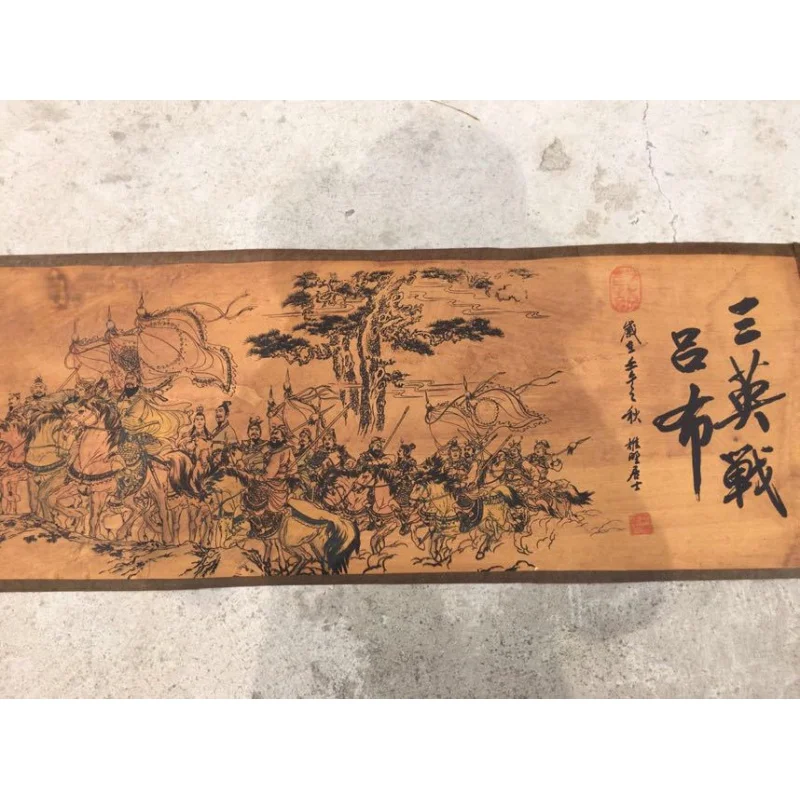 三英戰
呂布
歲在壬午之秋 雅明居士